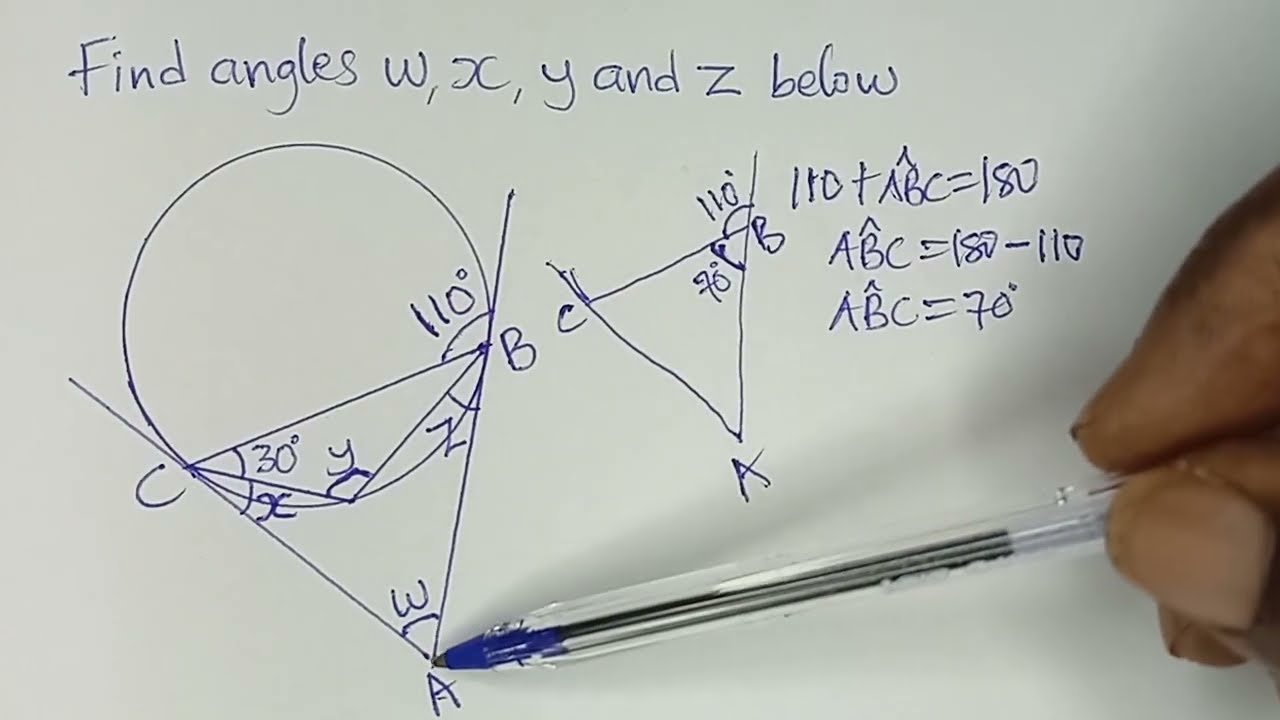 Find angles w, x, y and z below
110°
B
C
30°
y
x
z
w
A
110°
B
70°
C
A
110 + AB̂C = 180
AB̂C = 180 - 110
AB̂C = 70°